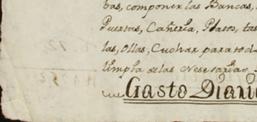 bas, componer las Bancas,
Puertas, Cañeria, Plato, ta
las, Ollas, Cuchar para tod
limpia de las Necesarias
Gasto Diari